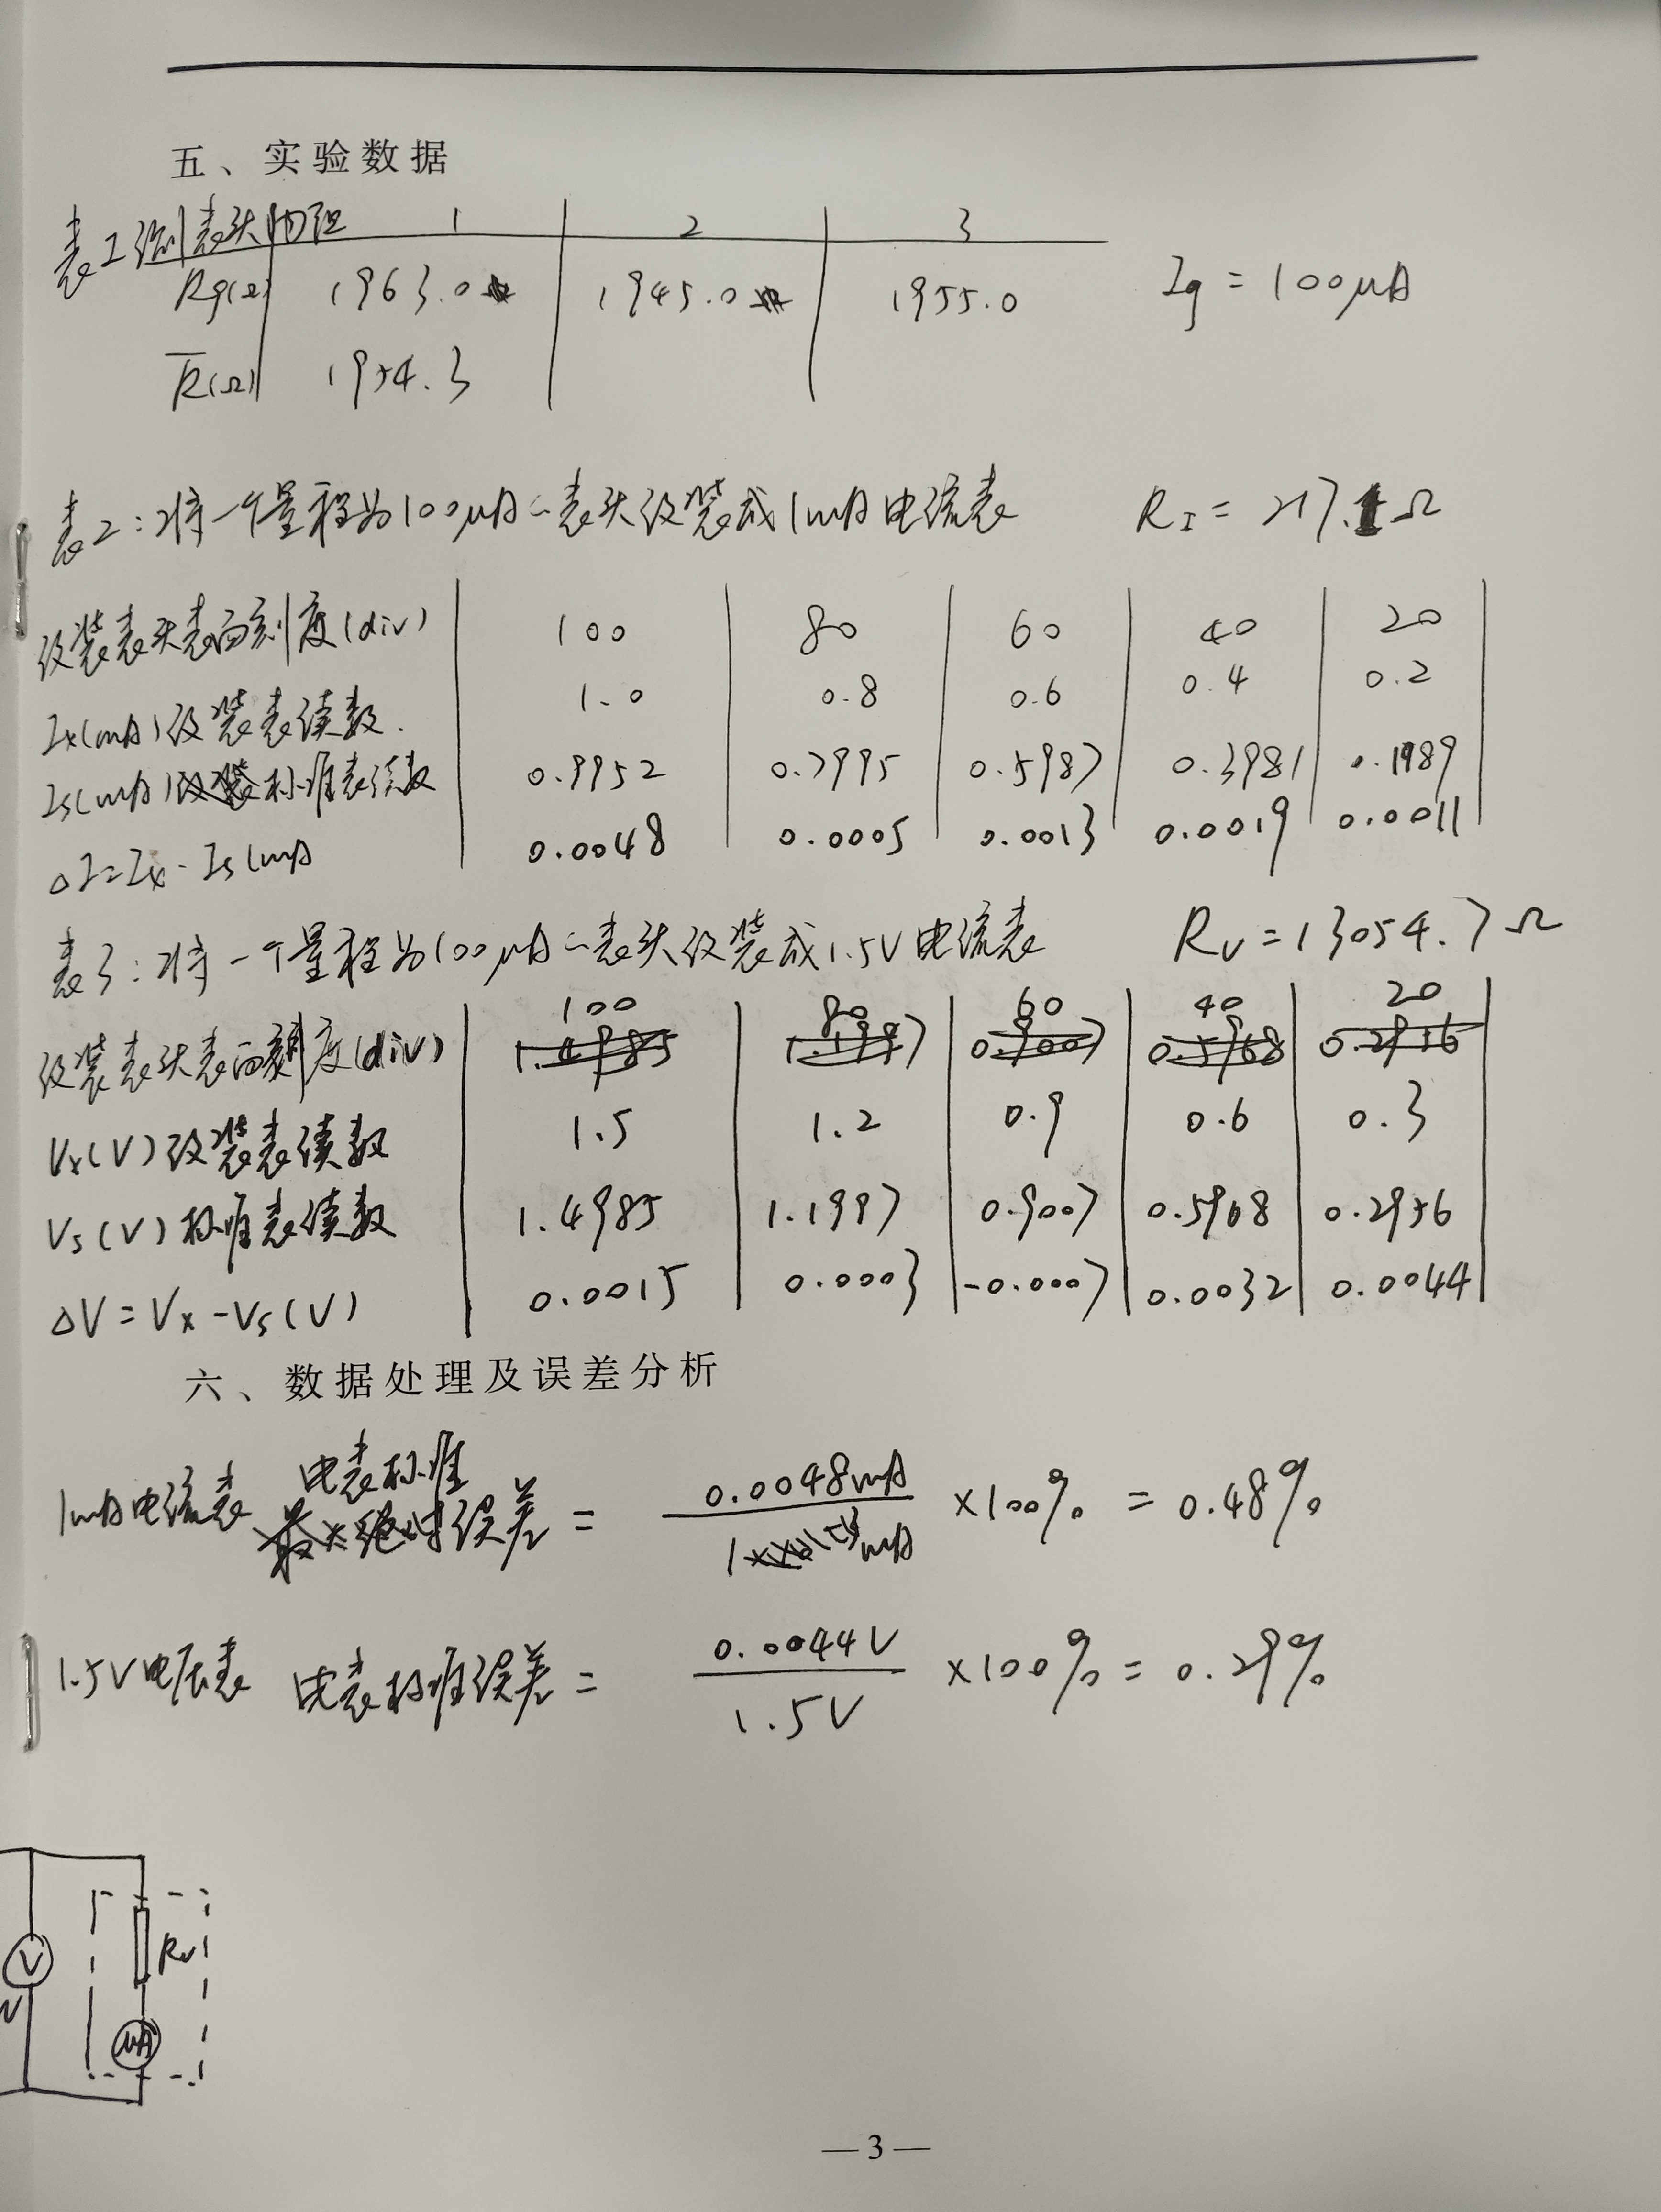 五、实验数据
表1 测表头内阻 1 2 3
Rg(Ω) 1963.0 1945.0 1955.0 Ig = 100μA
R̅(Ω) 1954.3
表2：将一个量程为100μA的表头改装成1mA电流表 RI = 217.1Ω
改装表头表面刻度(div) 100 80 60 40 20
Ix(mA)改装表读数. 1.0 0.8 0.6 0.4 0.2
Is(mA)标准表读数 0.9952 0.7995 0.5987 0.3981 0.1989
ΔI=Ix-Is(mA 0.0048 0.0005 0.0013 0.0019 0.0011
表3：将一个量程为100μA的表头改装成1.5V电流表 RV=13054.7Ω
改装表头表面刻度(div) 100 80 60 40 20
Vx(V)改装表读数 1.5 1.2 0.9 0.6 0.3
Vs(V)标准表读数 1.4985 1.1997 0.9007 0.5968 0.2956
ΔV=Vx-Vs(V) 0.0015 0.0003 -0.0007 0.0032 0.0044
六、数据处理及误差分析
1mA电流表 电表标准误差 = 0.0048mA / 1mA ×100% = 0.48%
1.5V电压表 电表标准误差 = 0.0044V / 1.5V ×100% = 0.29%
V Rv
μA
—3—